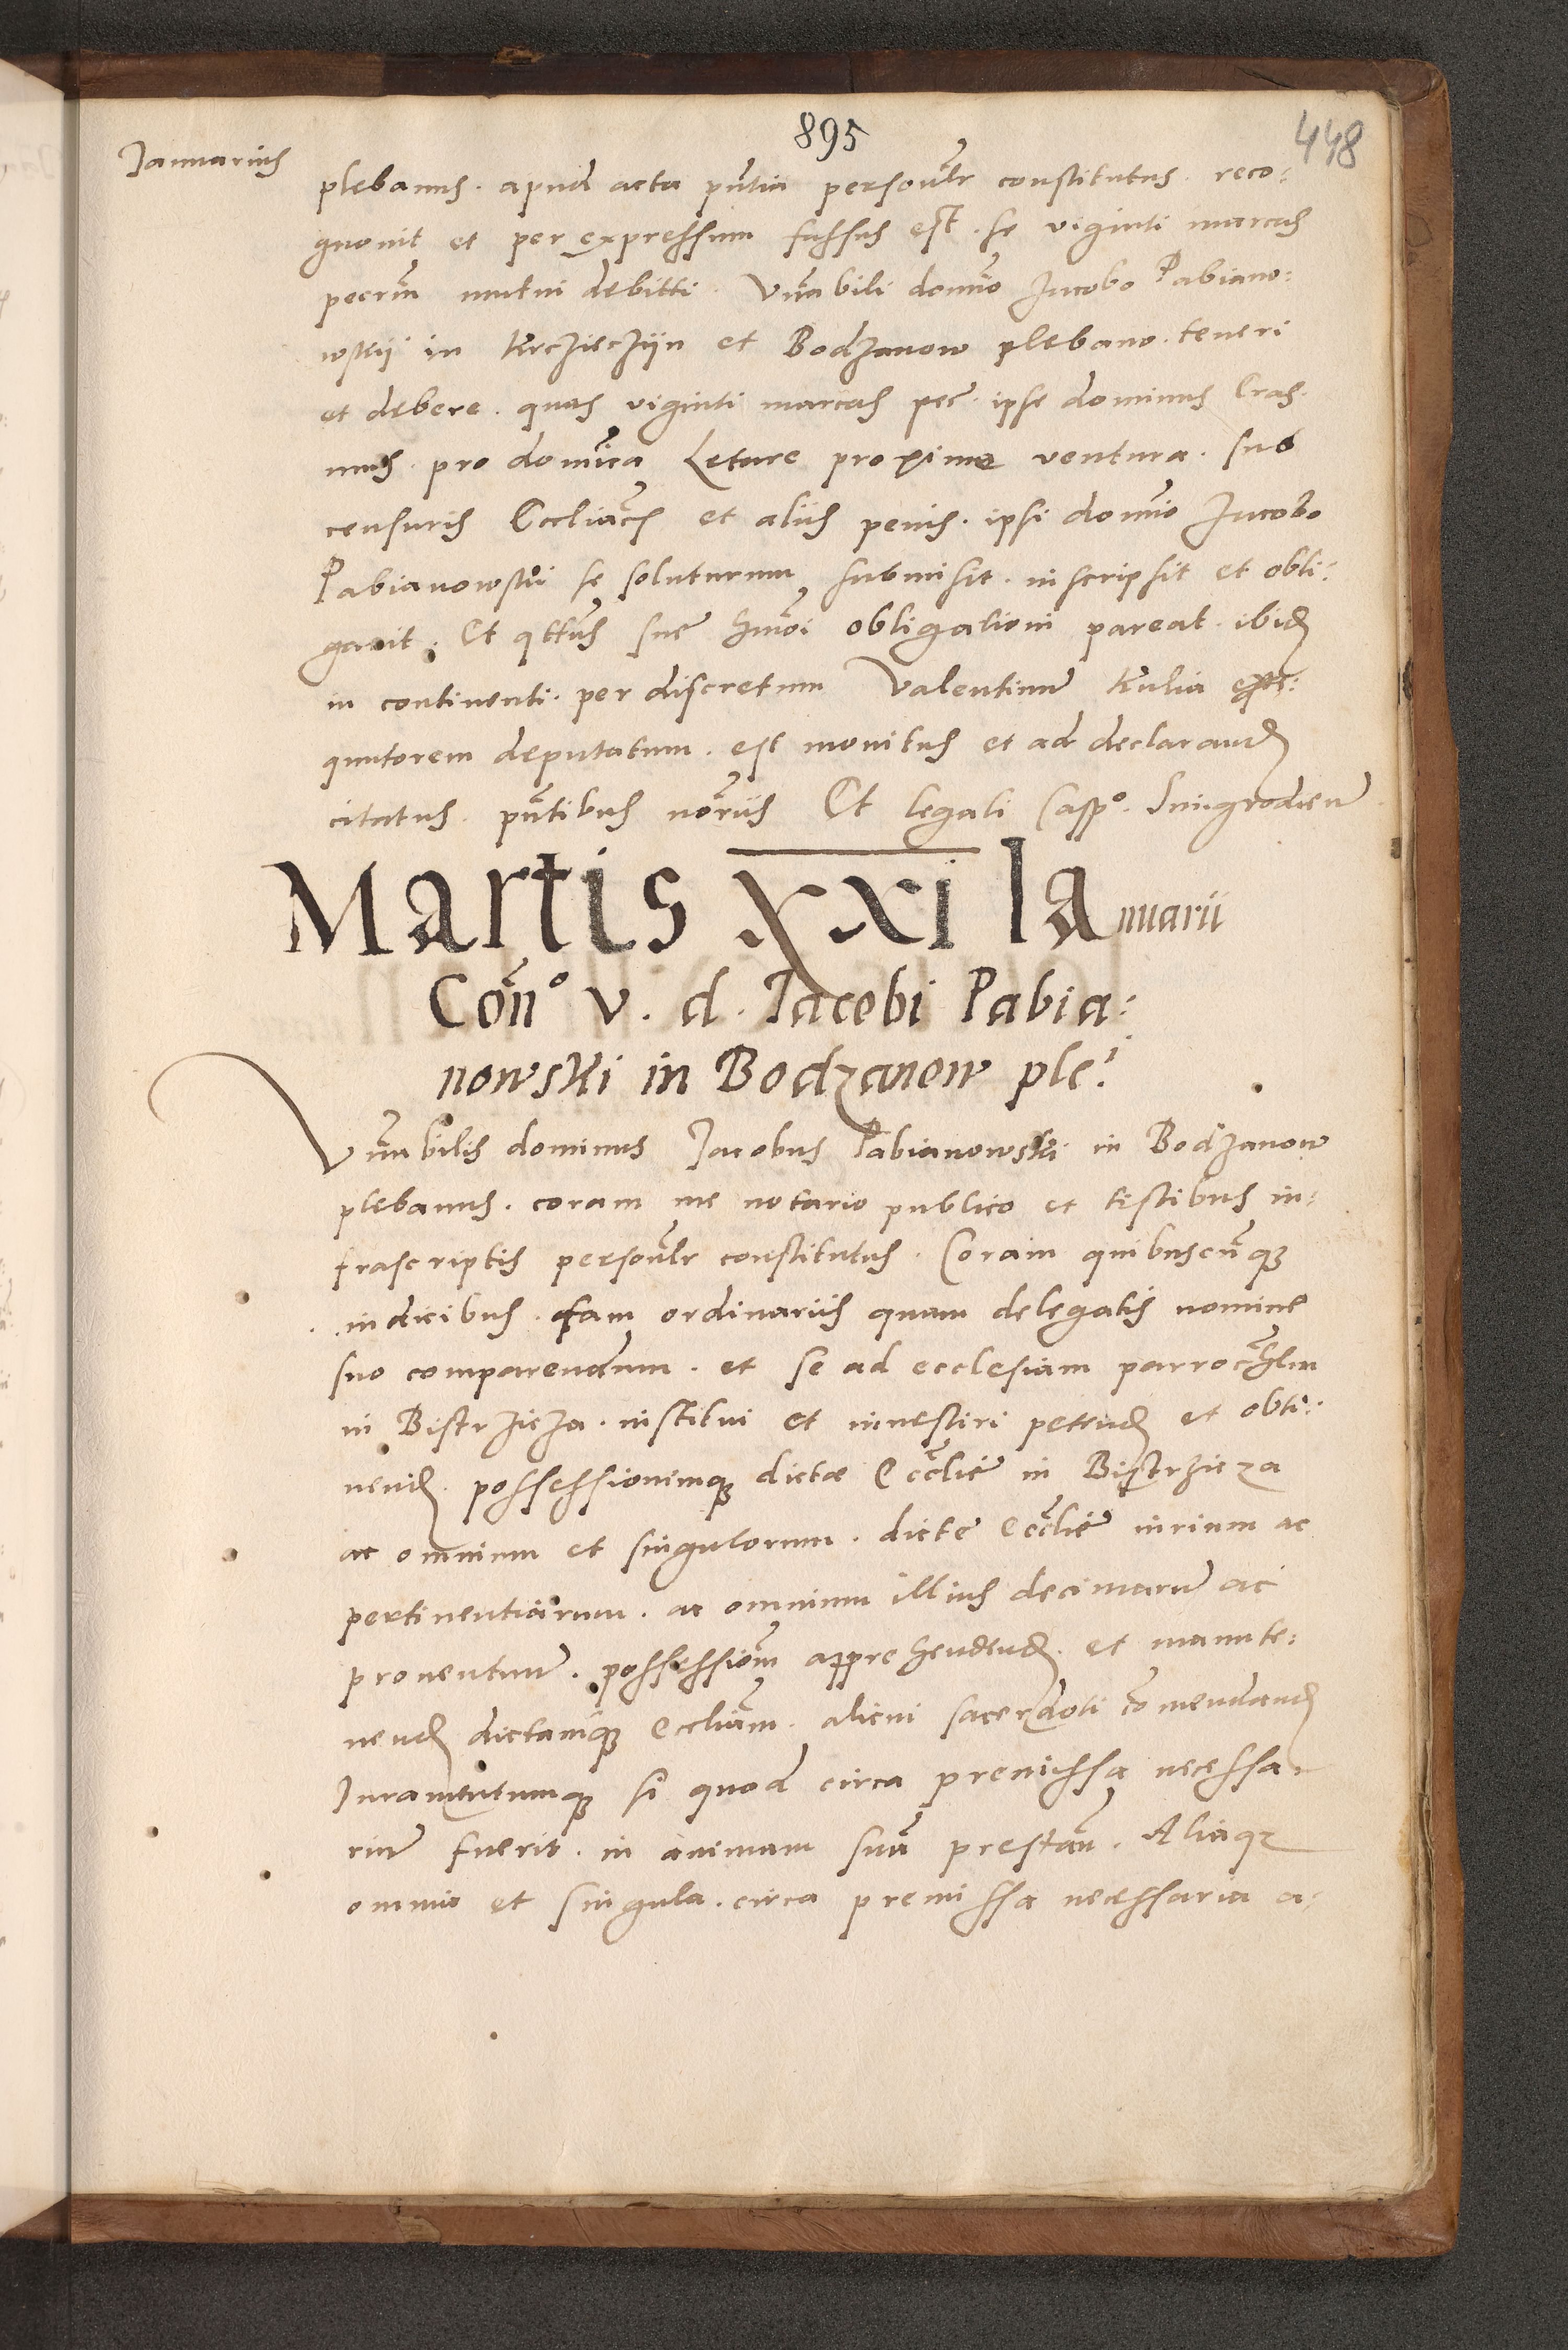 895
448
Januarius
plebanus. apud acta pntia personlr constitutus. reco:
gnouit et per expressum fassus est. se viginti marcas
pecrm mutui debitti. Vnabili domno Jacobo Pabiano:
wskij in Krczieczijn et Bodzanow plebano. teneri
et debere. quas viginti marcas pec. ipse dominus Eras.
mus. pro domica Letare proxime ventura. sub
censuris Eccliacis et aliis penis. ipsi domno Jacobo
Pabianowski se soluturum submisit. inscripsit et obli:
gauit. Et qttus sue hmoi obligationi pareat. ibid
in continenti. per discretum Valentinu Kulia exe:
qutorem deputatum. est monitus et ad declarand
citatus. pntibus noriis Et legali Casp. Snigrodien
Martis XXI Ianuarii
Con° v. d. Iacobi Pabia:
nowski in Bodzanow ple:
Vnabilis dominus Jacobus Pabianowski in Bodzanow
plebanus. coram me notario publico et testibus in:
frascriptis personlr constitutus. Coram quibuscunq
iudicibus tam ordinariis quam delegatis nomine
suo comparendum. et se ad ecclesiam parrochlem
in Bistrzicza. institui et inuestiri petend et obti:
nend. possessionemq dictae Ecclie in Bistrzicza
ac omnium et singulorum. dicte Ecclie iurium ac
pertinentiarum. ac omnium illius decimaru ac
prouentuu. possessiom apprehendend. et manute:
nend dictamq eccliam. alicui sacerdoti comendand
Juramentumq si quod circa premissa necessa-
riu fuerit. in animam sua prestan. Aliaq
omnia et singula. circa premissa necessaria a: